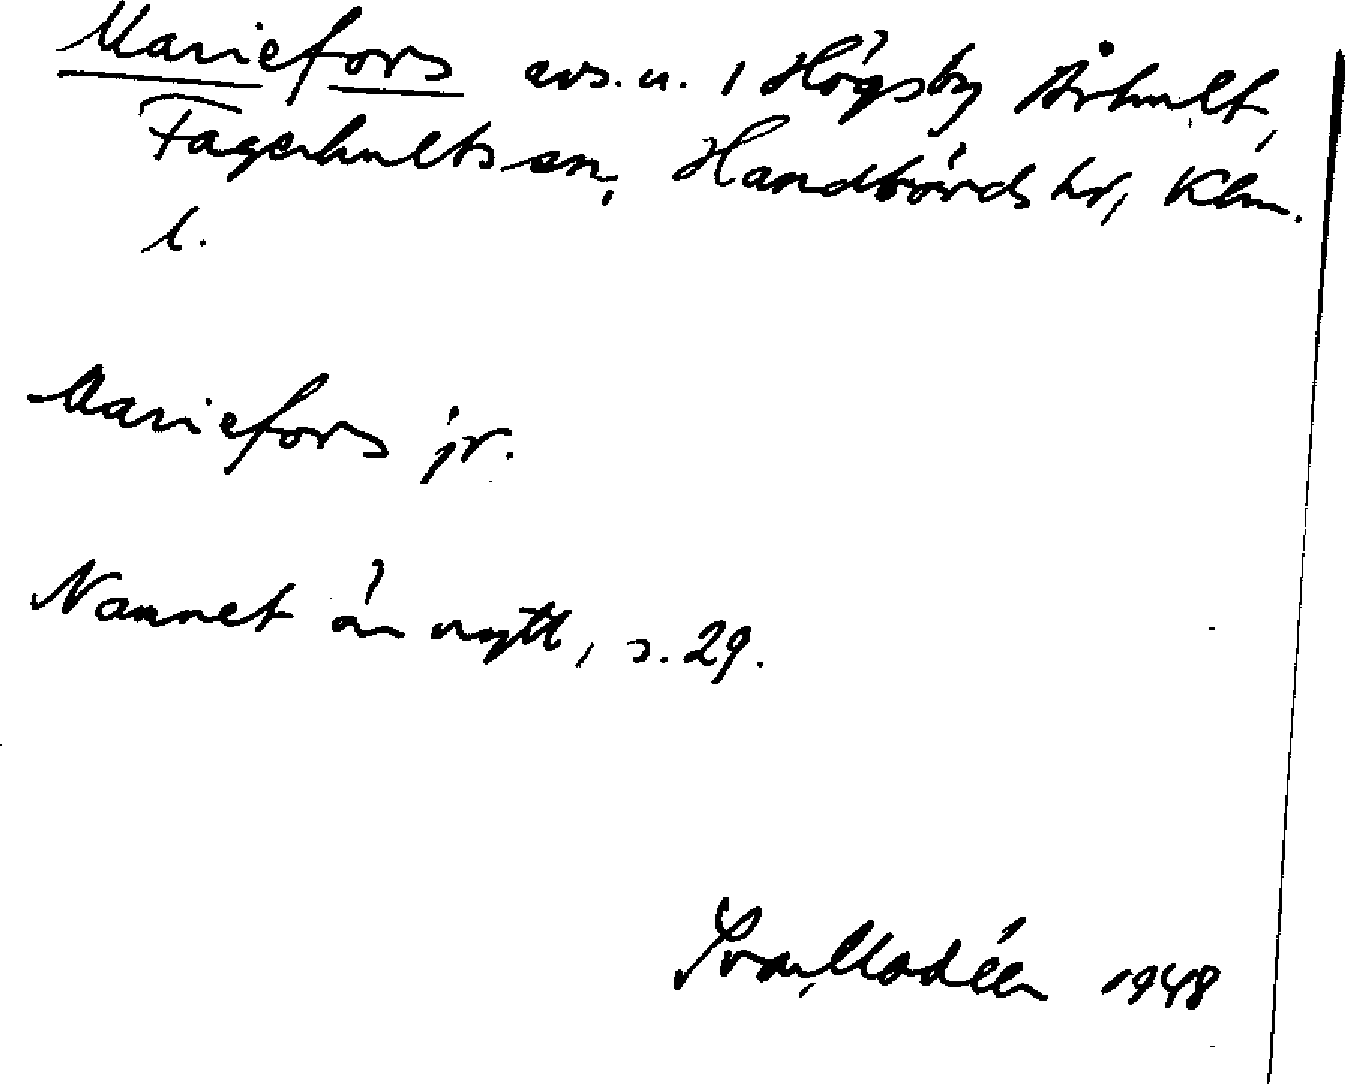 Mariefors avs.u. i Högsby Århult,
Fagerhults sn, Handbörds hd, Klm.
l.
Mariefors jr.
Namnet är nytt, s. 29.
Ivar Modéer 1948